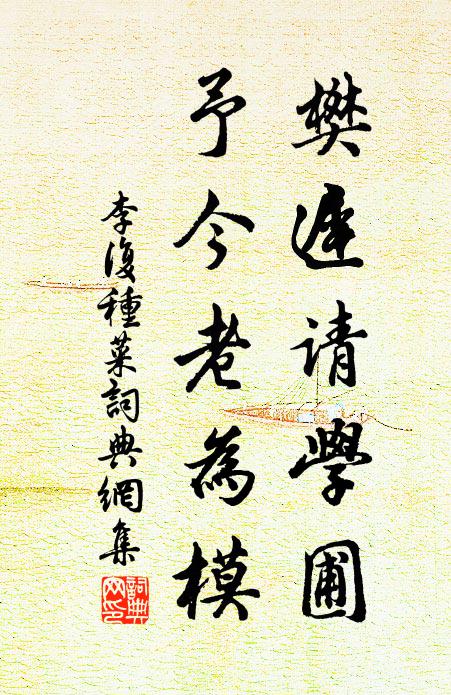 樊遲請學圃
予今老為模
李復種菜詞典網集
詞典
网印